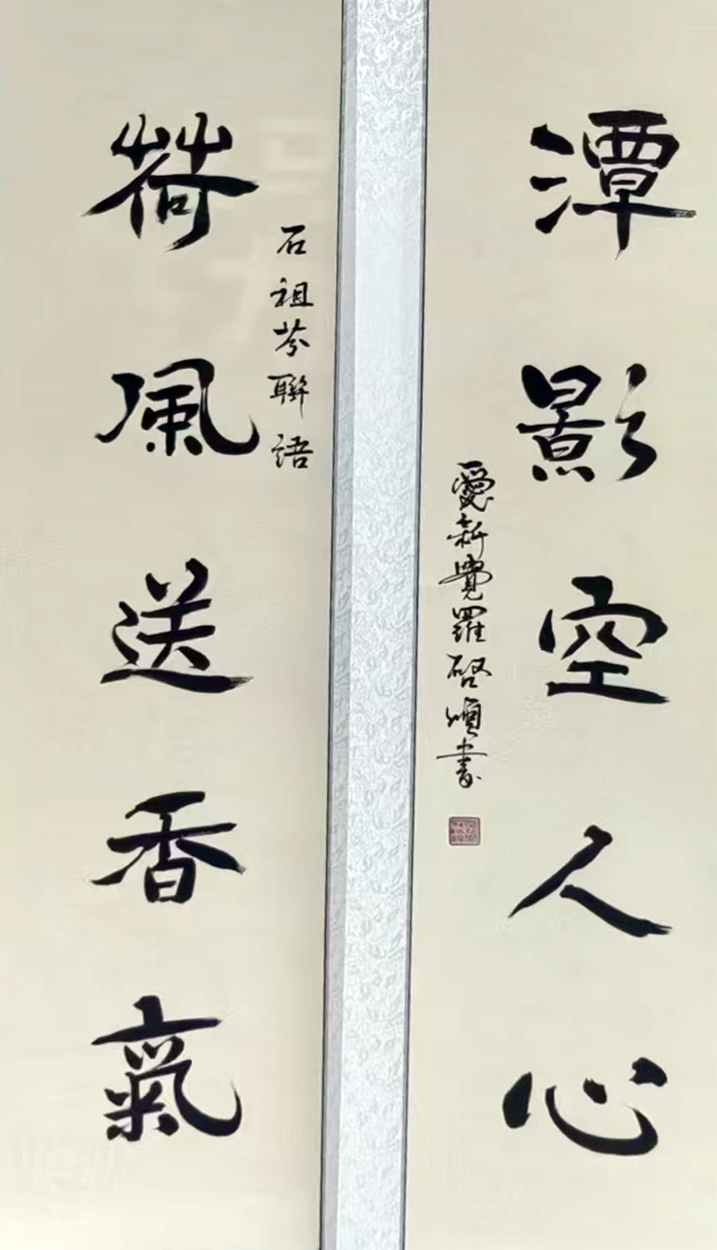 潭影空人心
愛新覺羅啓書
石祖芬聯語
荷風送香氣